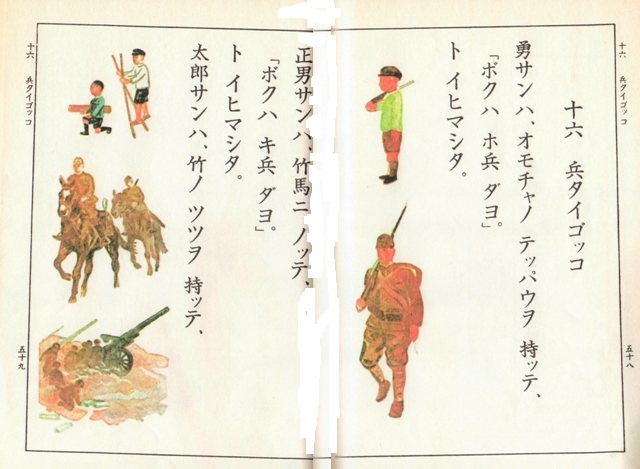 十六 兵タイゴッコ
十六 兵タイゴッコ
勇サンハ、オモチャノ テッパウヲ 持ッテ、
「ボクハ ホ兵 ダヨ。」
ト イヒマシタ。
五十八
正男サンハ、竹馬ニ ノッテ、
「ボクハ キ兵 ダヨ。」
ト イヒマシタ。
太郎サンハ、竹ノ ツツヲ 持ッテ、
十六 兵タイゴッコ
五十九